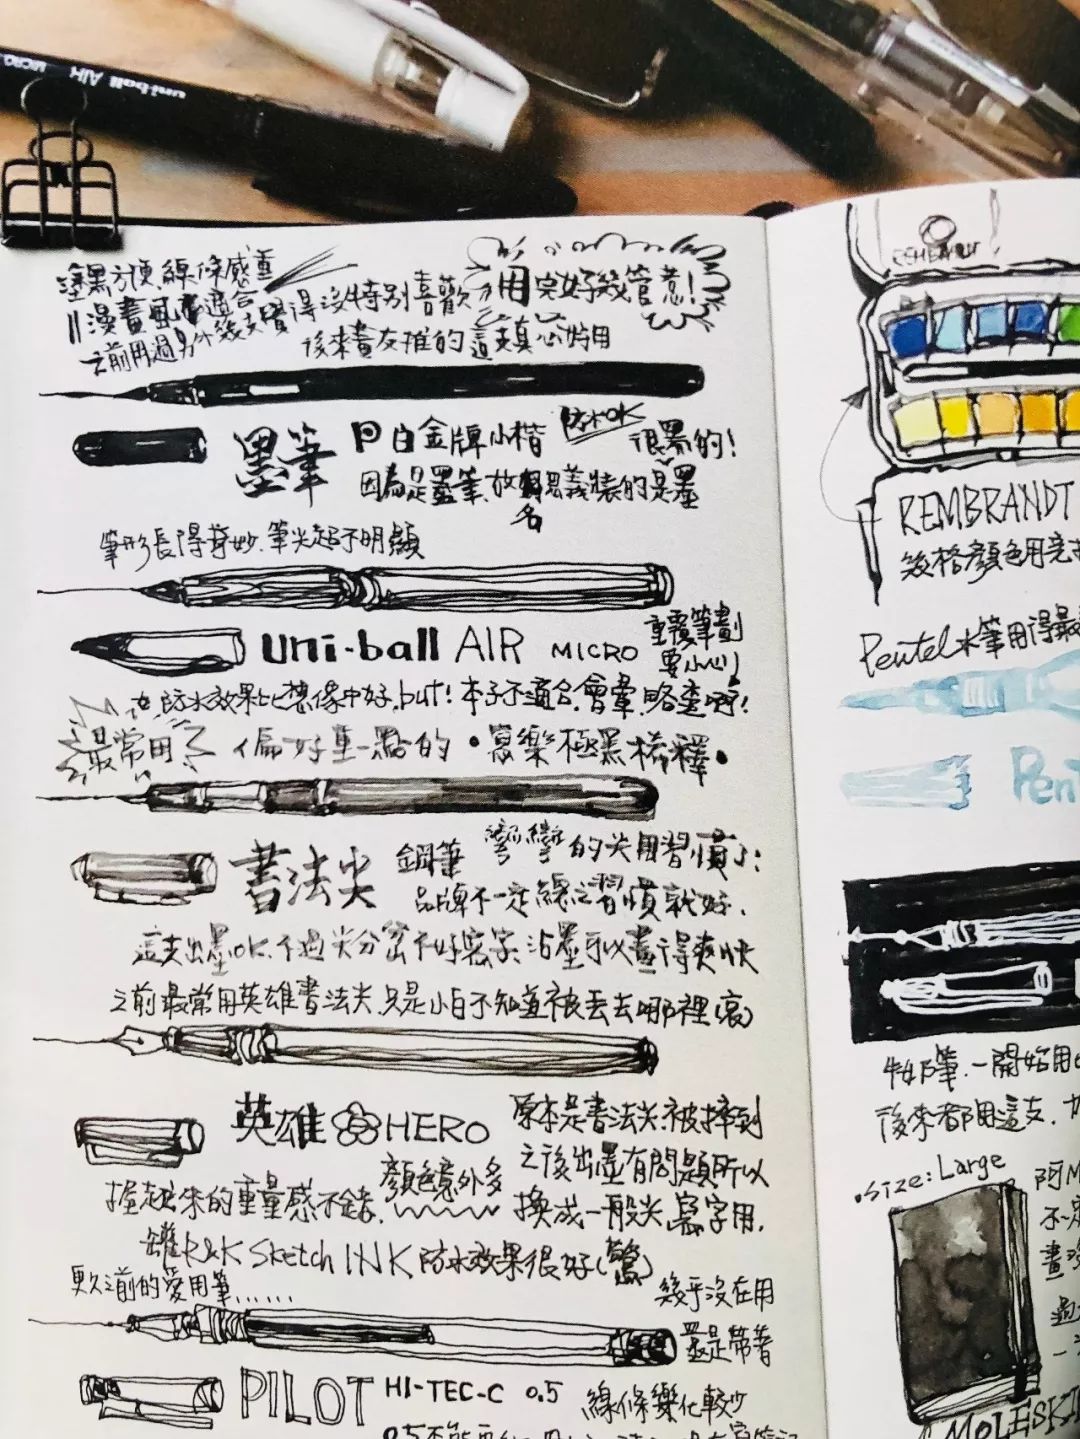 uni-ball AIR MICRO
塗黑方便,線條感重
漫畫風更適合
之前用過另外幾支覺得沒特別喜歡
後來畫友推的這支真心好用
用完好幾管惹!
墨筆 白金牌小楷 防水OK 很黑的!
因為是墨筆,故名思義裝的是墨
筆形長得奇妙.筆尖起不明顯
uni-ball AIR MICRO
重覆筆劃
要小心!
防水效果比想像中好,but! 本子不適合,會暈,略渣啊!
最常用
偏好重一點的・寫樂極黑稀釋・
書法尖 鋼筆 彎彎的尖用習慣了:
品牌不一定 總之習慣就好、
這支出墨OK.不過尖分岔不好寫字;沾墨可以畫得爽快
之前最常用英雄書法尖,只是小白不知道被丟去哪裡(哀)
英雄 HERO
原本是書法尖,被摔到
之後出墨有問題所以
換成一般尖寫字用,
握起來的重量感不錯、
顏色意外多
罐R&K Sketch INK 防水效果很好(驚)
更久之前的愛用筆......
幾乎沒在用
還是帶著
PILOT HI-TEC-C 0.5 線條變化較少
REMBRANDT
幾格顏色用完
Pentel水筆用得最
Pent
牛奶筆.一開始用
後來都用這支.
・size:Large
阿M
不一定
畫
過
MOLESKI